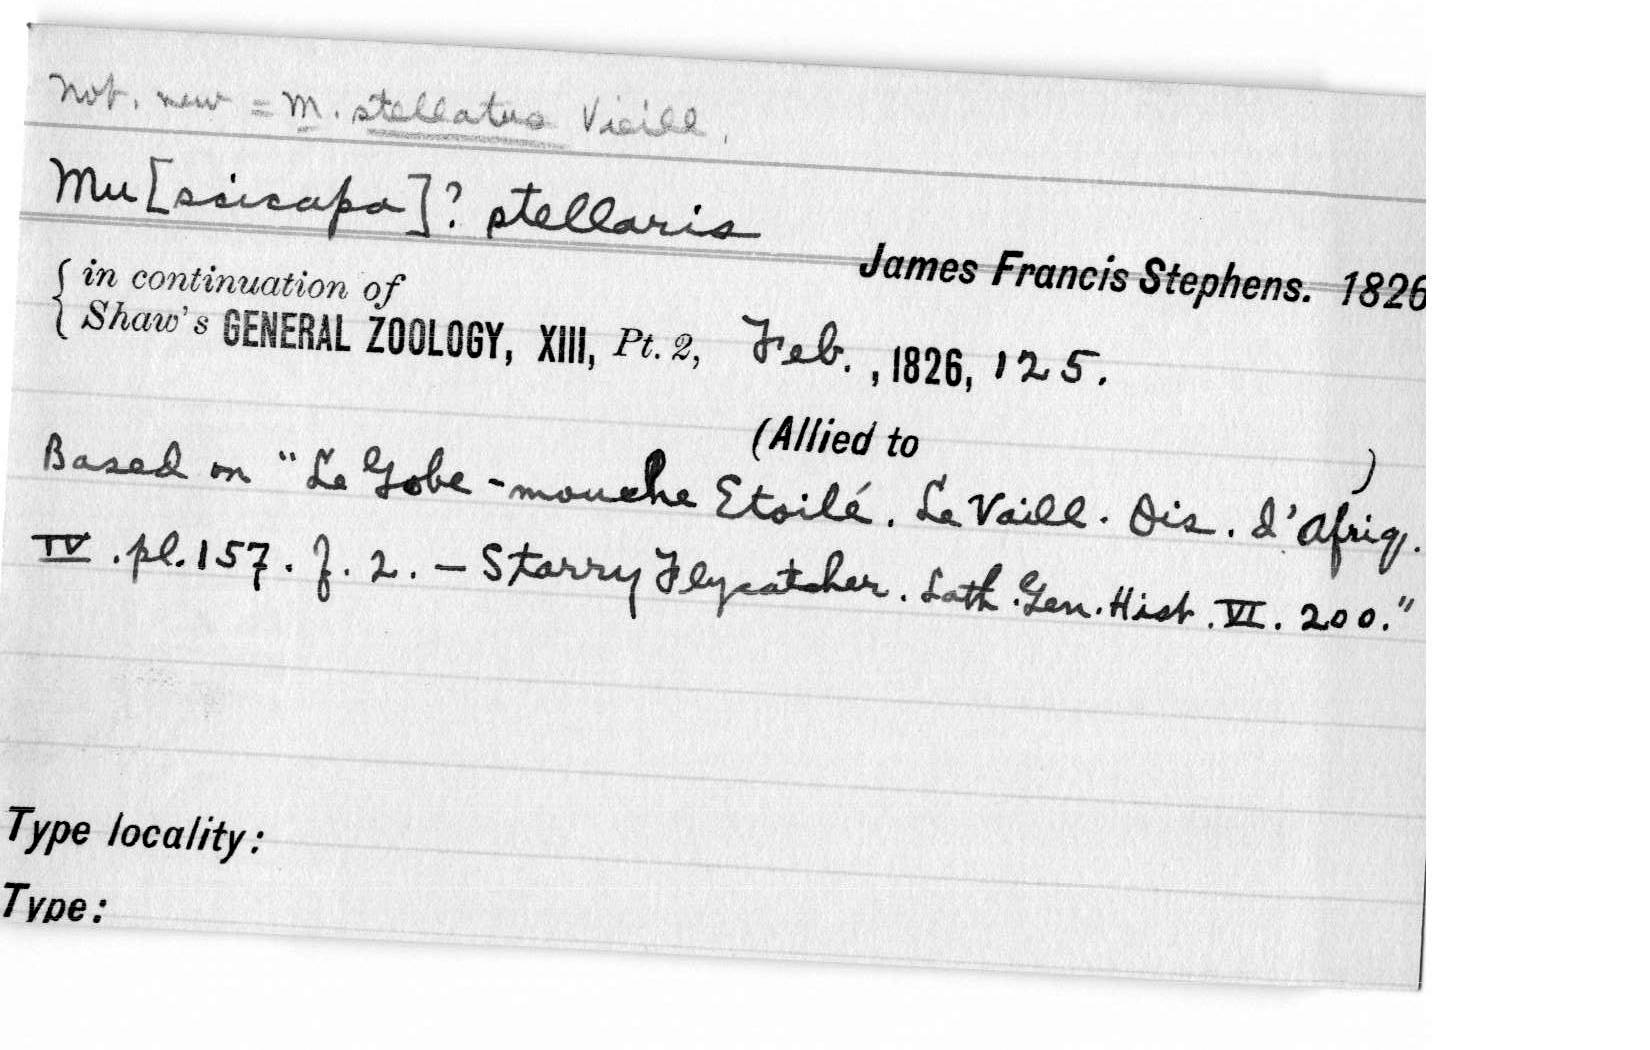 Not. new = M. stellatus Vieill.
Mu[scicapa]? stellaris
James Francis Stephens. 1826
{ in continuation of
Shaw's GENERAL ZOOLOGY, XIII, Pt. 2, Feb., 1826, 125.
(Allied to )
Based on "Le Gobe-mouche Etoilé. Le Vaill. Ois. d'Afriq.
IV. pl. 157. f. 2. – Starry Flycatcher. Lath. Gen. Hist. VI. 200."
Type locality:
Type: